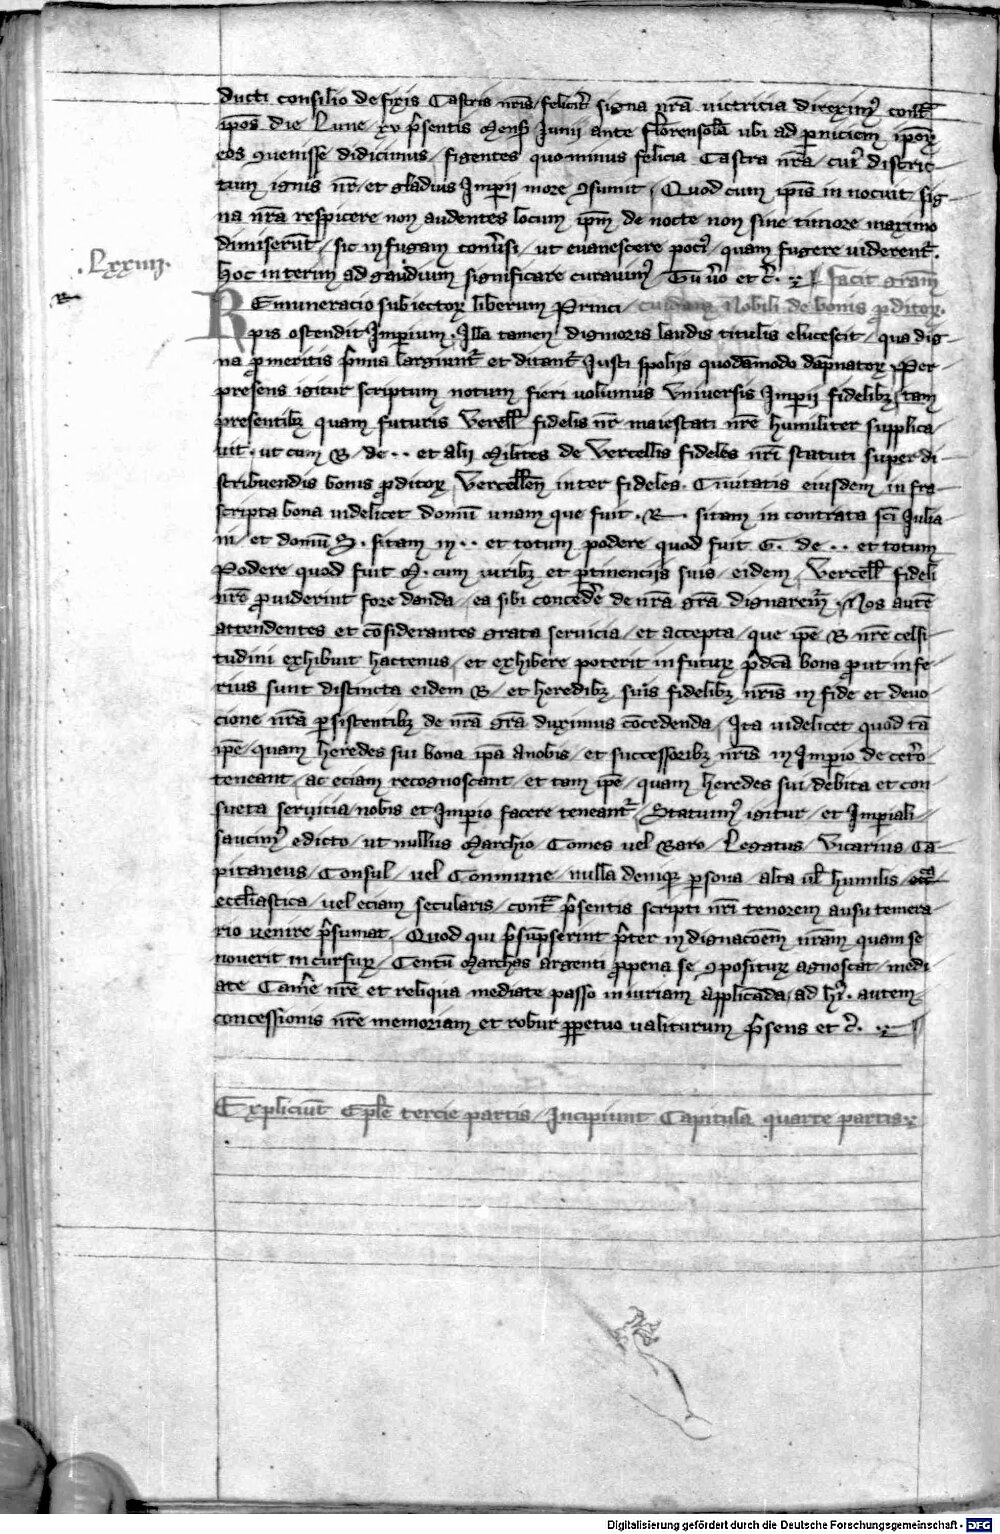 ducti consilio de fixis Castris nr̄is / felicit̄ signa nr̄a victricia direxim⁹ cont̄
ip̄os die Lune xv p̄sentis Mens̄ Junii ante Florensolā ubi ad p̱niciem ip̄oꝝ
eos ꝯuenisse didicimus / figentes quominus felicia Castra nr̄a / cui⁹ distric-
tum ignis nr̄ / et gladius Imperii more ꝯsumit / Quod cum ip̄is in nocuit sig-
na nr̄a respicere non audentes locum ip̄m de nocte non sine timore maximo
dimiserūt / sic in fugam conu̓si / ut euanescere poci⁹ / quam fugere viderent̄.
hoc interim ad gaudium significare curauim⁹ Tu v̓o et c̄. facit gr̄am
.Lxxiiij.
REmuneracio subiectoꝝ liberum Princi / cuidam Nobili de bonis ꝓditoꝝ.
pis ostendit Imperium. Illa tamen dignioris laudis titulis elucescit / qua dig-
na ꝓ meritis p̄mia largiunt̄ et ditant̄ Justi spoliis quodāmodo dāpnatoꝝ / Per-
presens igitur scriptum notum fieri volumus vniuersis Imperii fidelibꝫ / tam
presentibꝫ quam futuris Vercell̄ fidelis nr̄ maiestati nr̄e humiliter supplica
uit. ut cum B / de .. et alii Milites de Vercellis fideles nr̄i statuti super di
stribuendis bonis ꝓditoꝝ Vercelleñ inter fideles. Ciuitatis eiusdem in fra
scripta bona videlicet domū unam que fuit .R. sitam in contrata sc̄i Julia
ni / et domū S. sitam in .. et totum podere quod fuit G. de .. et totum
Podere quod fuit M. cum iuribꝫ et p̱tinenciis suis / eidem Vercell̄ fideli
nr̄o ꝓuiderint fore danda / ea sibi concedere de nr̄a gr̄a dignarem̄. Nos autē
attendentes et cōsiderantes grata seruicia / et accepta / que ip̄e B nr̄e celsi
tudini exhibuit hactenus / et exhibere poterit in futuꝝ p̄dc̄a bona ꝓut infe
rius sunt distincta eidem B / et heredibꝫ suis fidelibꝫ nr̄is in fide et deuo
cione nr̄a p̱sistentibꝫ de nr̄a gr̄a duximus cōcedenda / Ita videlicet quod tā
ip̄e / quam heredes sui bona ip̄a a nobis / et successoribꝫ nr̄is in Imperio de cet̓o
teneant / ac eciam recognoscant / et tam ip̄e / quam heredes sui / debita et con
sueta seruicia nobis et Imperio facere teneant̄ / Statuim⁹ igitur / et Imperiali
sancim⁹ edicto / ut nullus Marchio / Comes vel Baro / Legatus / Vicarius Ca-
pitaneus / Consul / vel Commune / nulla deniqꝫ p̱sona / alta vl̄ humilis
eccl̄iastica / vel eciam secularis / cont̄ p̄sentis scripti nr̄i tenorem ausu temera
rio venire p̄sumat. Quod qui p̄sūpserint p̄ter indignacōem nr̄am quam se
nouerit incursuꝝ / Centū Marchas argenti ꝓ pena se ꝯposituꝝ agnoscat / medi
ate Cam̄e nr̄e et reliqua mediate passo iniuriam applicāda / ad hui⁹. autem
concessionis nr̄e memoriam et robur ꝑpetuo valiturum p̄sens et c̄.
Expliciūt Epl̄e tercie partis / Incipiunt Capitula quarte partis
Digitalisierung gefördert durch die Deutsche Forschungsgemeinschaft - DFG